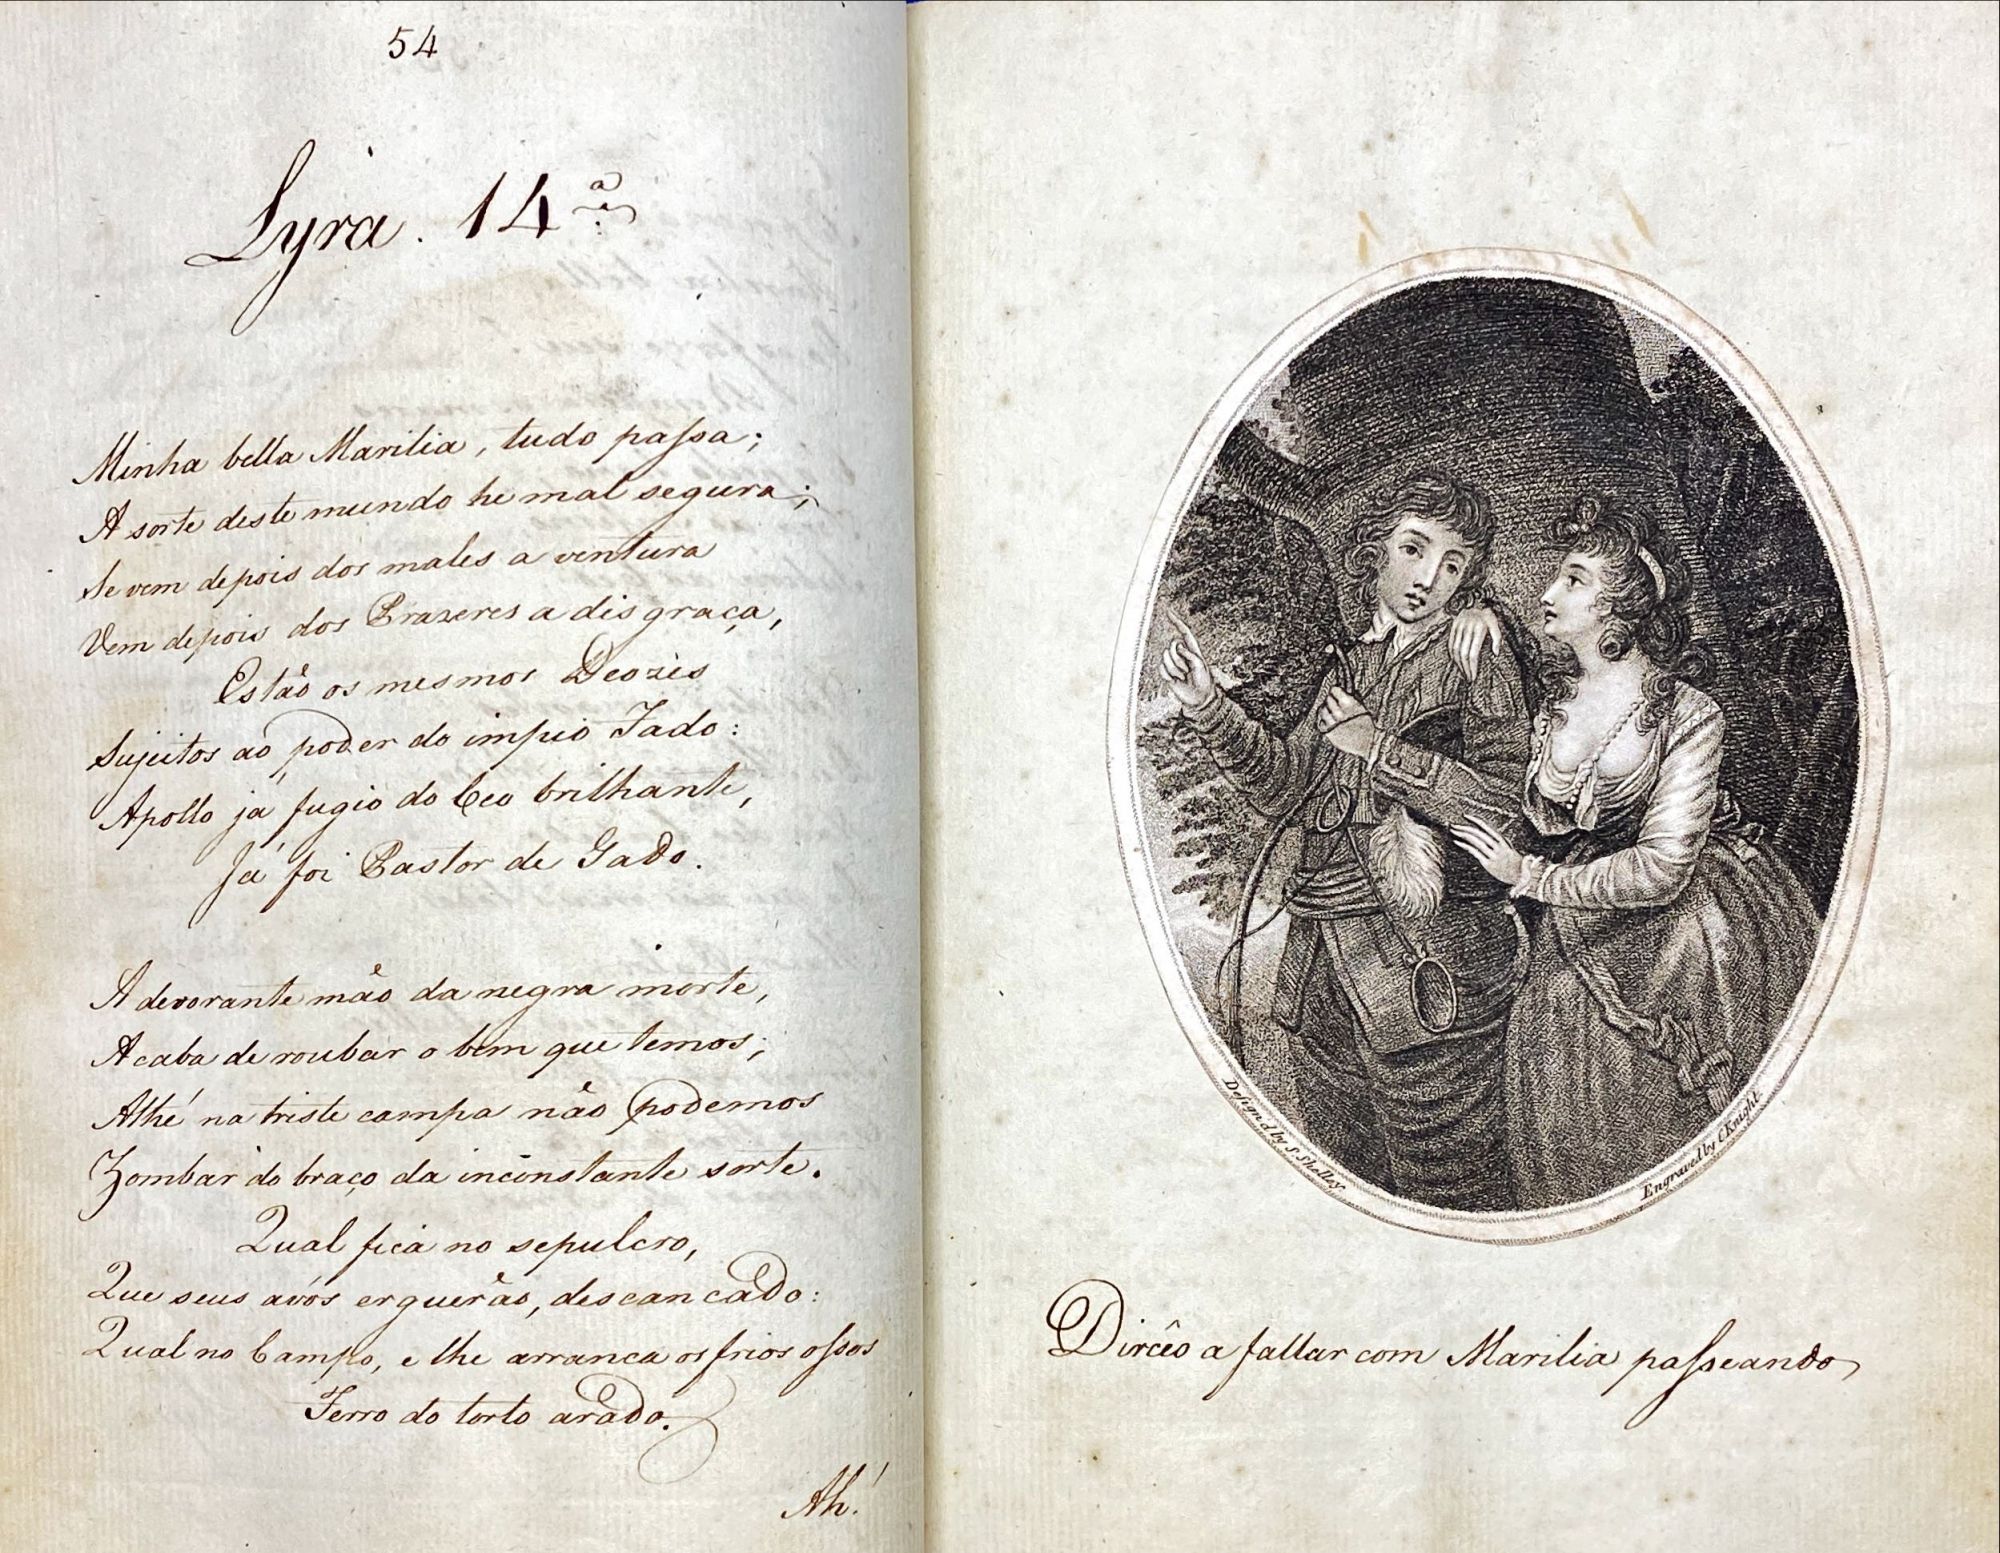 54
Lyra. 14ª
Minha bella Marilia, tudo paſsa;
A sorte deste mundo he mal segura;
Se vem depois dos males a ventura
Vem depois dos Prazeres a disgraça,
Estão os mesmos Deozes
Sujeitos ao poder do impio Fado:
Apollo já fugio do Ceo brilhante,
Já foi Pastor de Gado.
A devorante mão da negra morte,
Acaba de roubar o bem que temos;
Athé na triste campa não podemos
Zombar do braço da inconstante sorte.
Qual fica no sepulcro,
Que seus avós erguerão, descançado:
Qual no Campo, e lhe arranca os frios oſsos
Ferro do torto arado.
Ah!
Design'd by S. Shelley.
Engraved by C Knight
Dircêo a fallar com Marilia paſseando